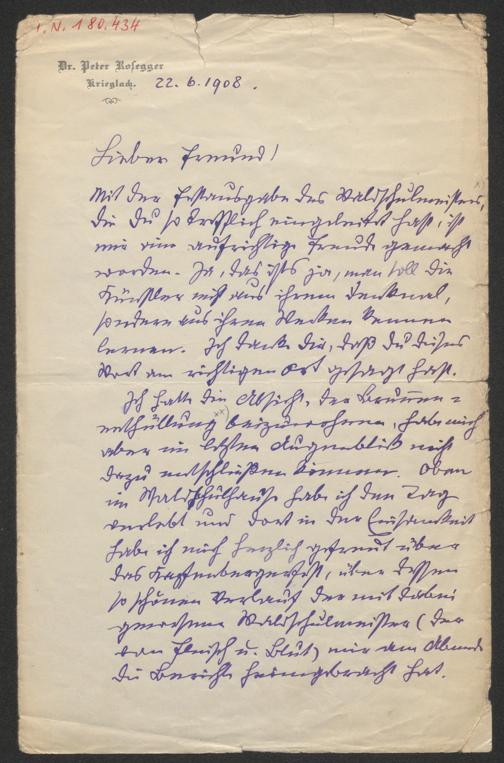 I.N. 180.434
Dr. Peter Rosegger
Krieglach.
22.6.1908.
Lieber Freund!
Mit der Festausgabe des Waldschulmeisters,
die du so trefflich eingeleitet hast, ist
mir eine aufrichtige Freude gemacht
worden. Ja, das ists ja, man soll die
Künstler nicht aus ihrem Denkmal,
sondern aus ihren Werken kennen
lernen. Ich danke dir, daß du dieses
Wort am richtigen Ort gesagt hast.
Ich hatte die Absicht, der Brunnen=
enthüllung beizuwohnen, habe mich
aber im letzten Augenblick nicht
dazu entschließen können. Oben
im Waldschulhause habe ich den Tag
verlebt und dort in der Einsamkeit
habe ich mich herzlich gefreut über
das, über dessen
so schönen Verlauf der mit dabei
gewesene Waldschulmeister (der
von Fleisch u. Blut) mir am Abende
die Berichte heimgebracht hat.